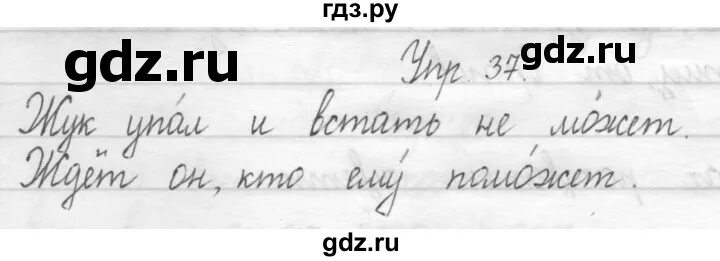 гдз.ру
gdz.ru
gdz.ru
Упр. 37.
Жук упа́л и встать не мо́жет.
Ждёт он, кто ему́ помо́жет.
gdz.ru